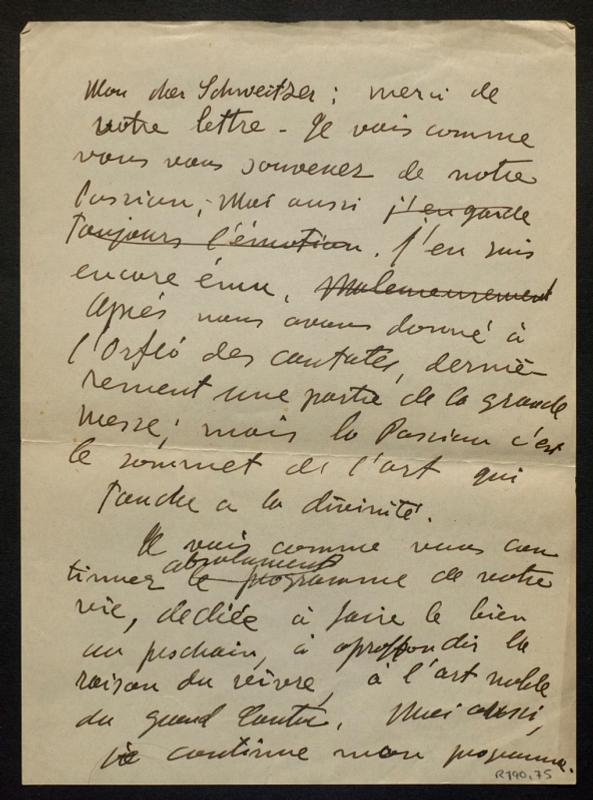 Mon cher Schweitzer; merci de
votre lettre - Je vois comme
vous vous souvenez de notre
Passion,- Moi aussi j'en garde
toujours l'émotion. J'en suis
encore ému,
après nous avons donné à
l'Orfeó des cantates, derniè-
rement une partie de la grande
Messe; mais la Passion c'est
le sommet de l'art qui
touche a la divinité.
Je vois comme vous con
tinuez
absolument
le programme de votre
vie, dediée à faire le bien
au prochain, à approfondir la
raison du vivre, à l'art noble
du grand Cantor. Moi aussi,
je continue mon programme.
R190.75